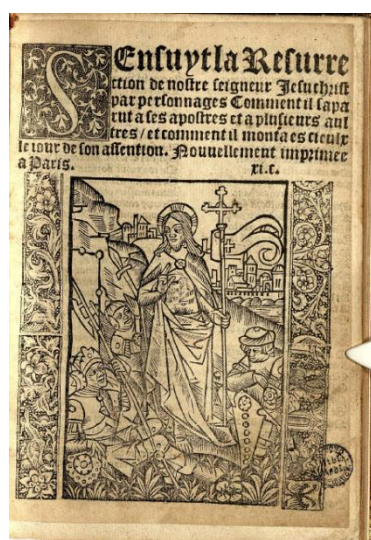 SEnsuyt la Resurre
ction de nostre seigneur Jesuchrist
par personnages Comment il sapa
rut a ses apostres et a plusieurs aul
tres / et comment il monta es cieulx
le iour de son assention. Nouuellement imprimee
a Paris. xi.c.